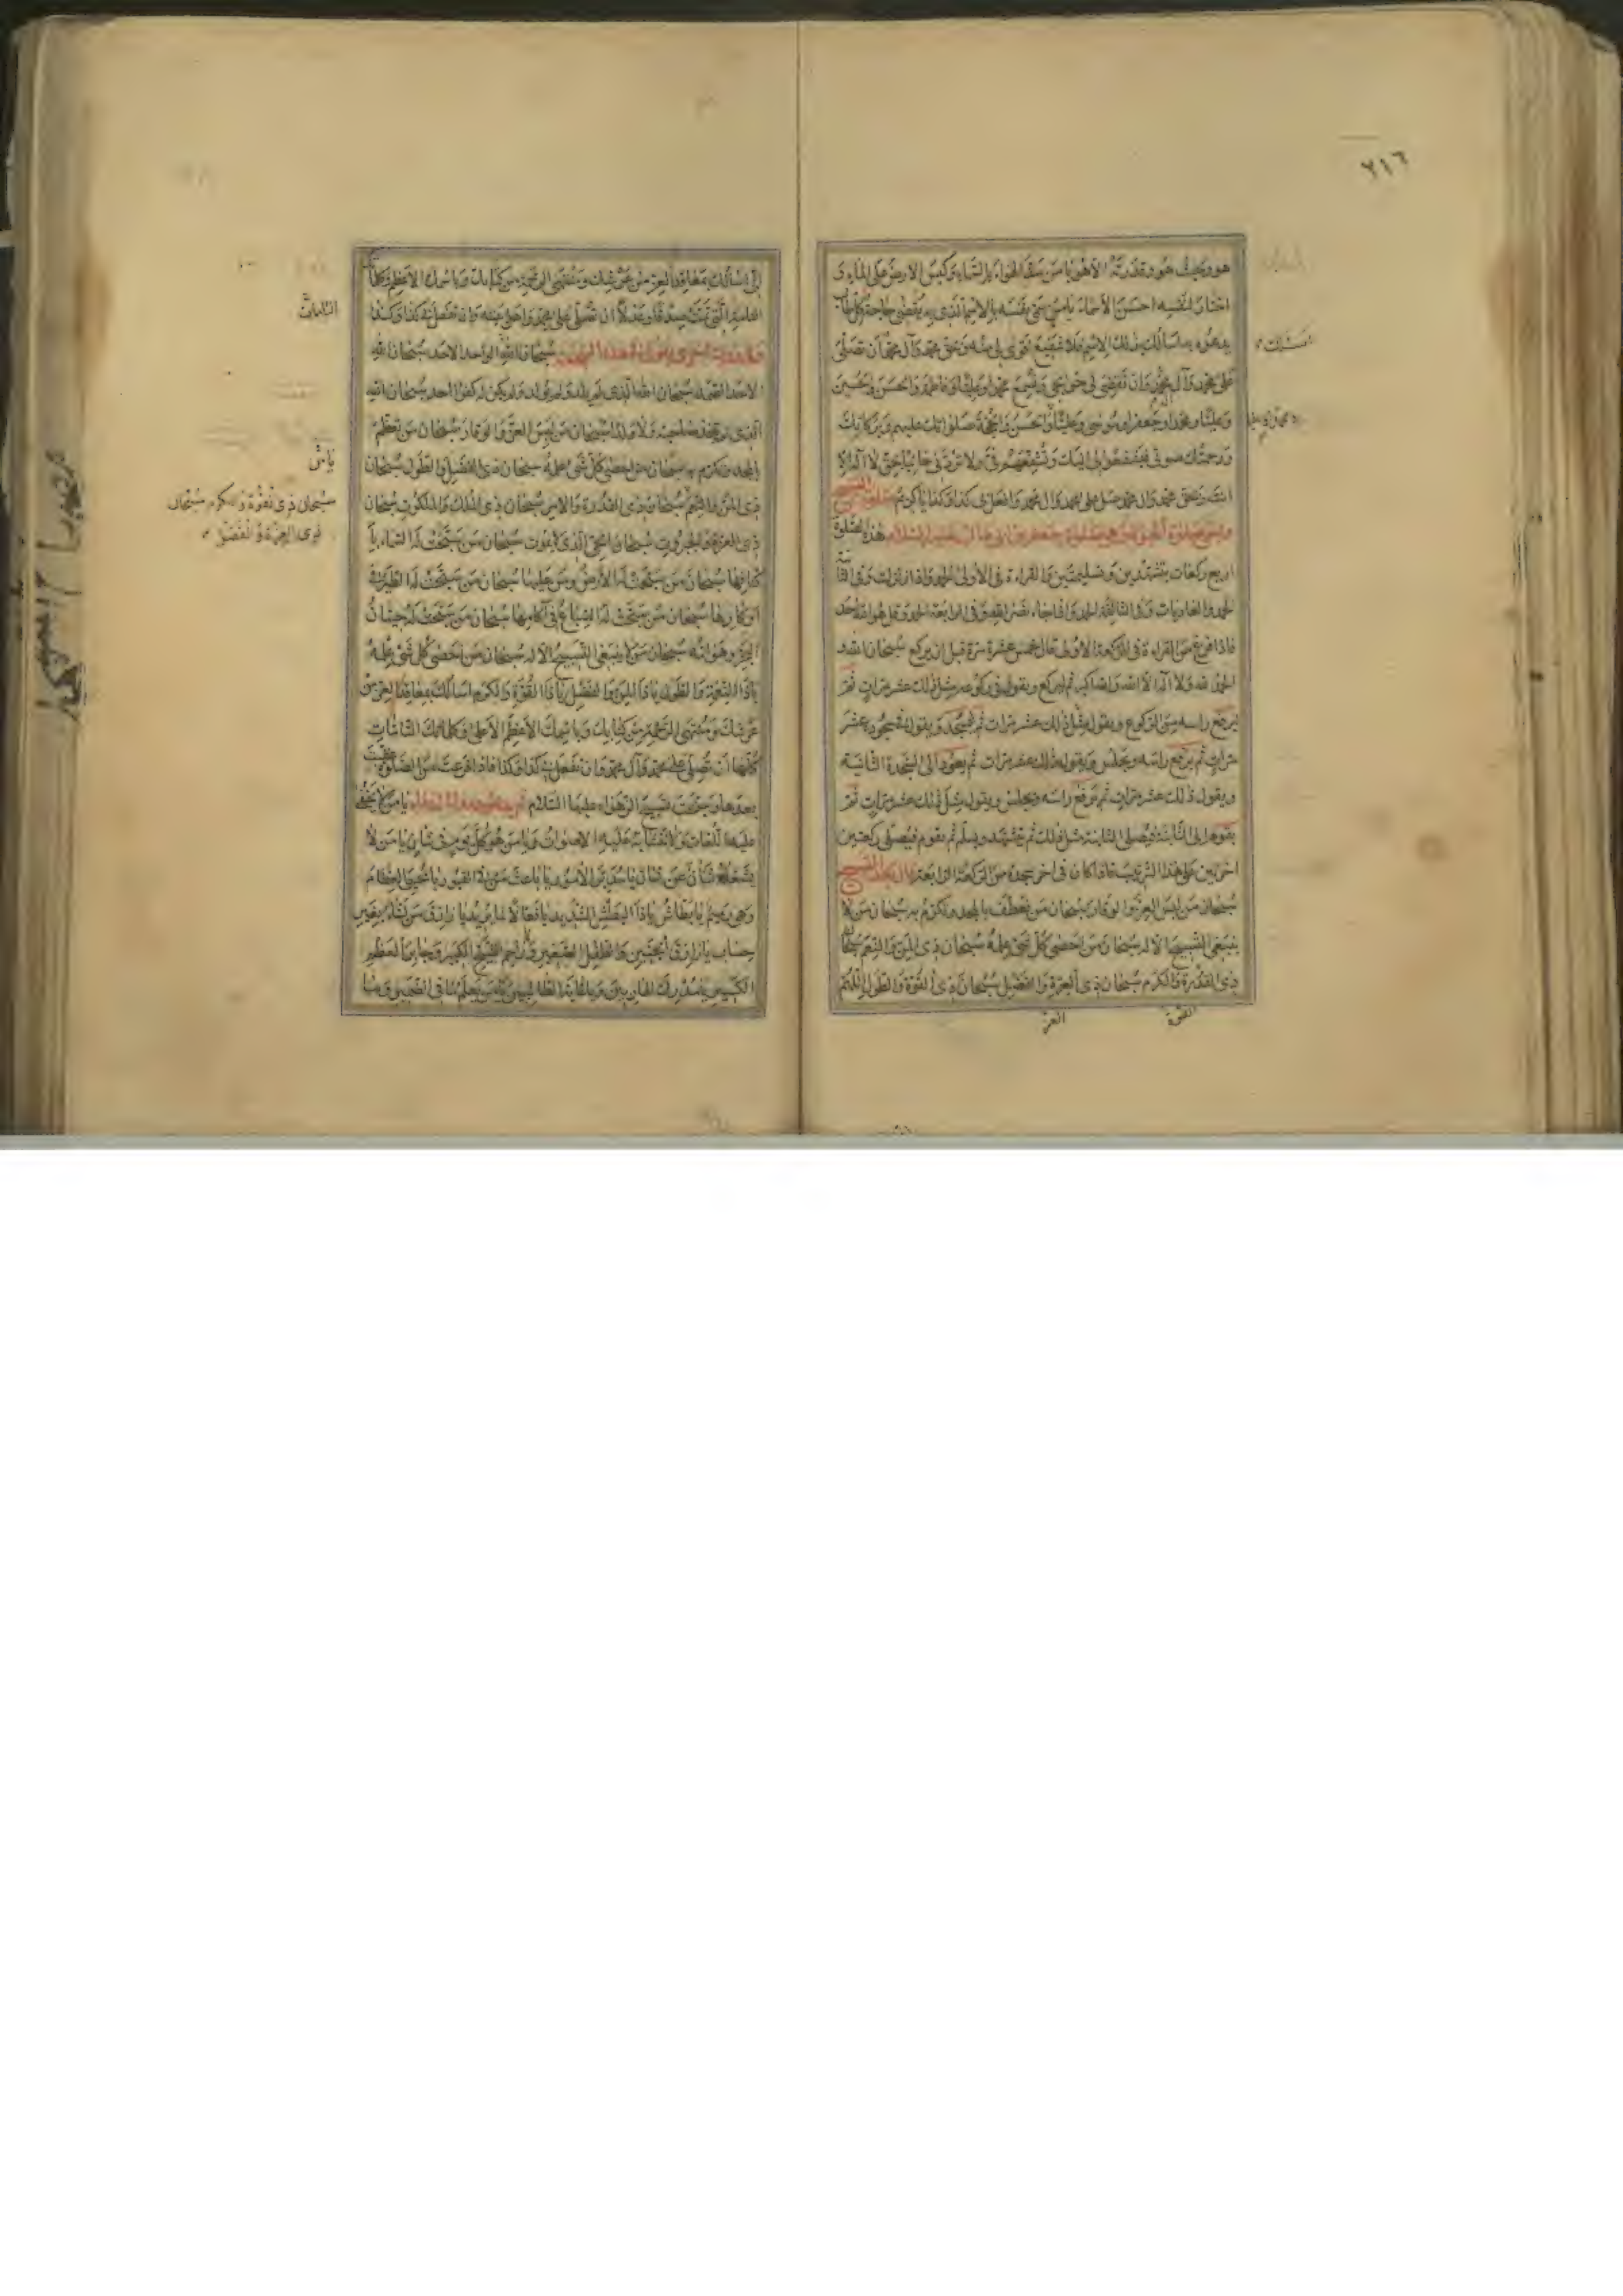 ٢١٦
هو وبحيث هو وقدرته الا هو يا من سقف الهواء بالسماء وكبس الارض على الماء و
اختار لنفسه احسن الاسماء يا من سمى نفسه بالاسم الذى به يقضى حاجة كل
يدعوه به اسالك بذلك الاسم فلا شفيع اقوى لى منه وبحق محمد وآل محمد ان تصلى
على محمد وآل محمد وان تقضى لى حوائجى وتسمع محمدا وعليا وفاطمة والحسن والحسين
وعليا ومحمدا وجعفرا وموسى وعليا والحسن والحجة صلواتك عليهم وبركاتك
ورحمتك صوتى فيشفعوا لى اليك وتشفعهم فى ولا تردنى خائبا بحق لا اله الا
انت وبحق محمد وآل محمد صل على محمد وآل محمد وافعل بى كذا وكذا يا كريم
وهى صلوة جعفر بن ابى طالب عليه السلام هذه الصلوة
اربع ركعات بتشهدين وتسليمتين والقراءة فى الاولى الحمد واذا زلزلت وفى الثانية
الحمد والعاديات وفى الثالثة الحمد واذا جاء نصر الله وفى الرابعة الحمد وقل هو الله احد
فاذا فرغ من القراءة فى الركعة الاولى قال خمس عشرة مرة قبل ان يركع سبحان الله و
الحمد لله ولا اله الا الله والله اكبر ثم ليركع ويقول فى ركوعه مثل ذلك عشر مرات ثم
ليرفع راسه من الركوع ويقول مثل ذلك عشر مرات ثم ليسجد ويقول فى سجوده عشر
مرات ثم يرفع راسه ويجلس ويقول ذلك عشر مرات ثم يعود الى السجدة الثانية
ويقول ذلك عشر مرات ثم يرفع راسه ويجلس ويقول مثل ذلك عشر مرات ثم
يقوم الى الثانية فيصلى الثانية مثل ذلك ثم يتشهد ويسلم ثم يقوم فيصلى ركعتين
اخريين على هذا الترتيب فاذا كان فى اخر سجدة من الركعة الرابعة قال بعد التسبيح
سبحان من لبس العز والوقار سبحان من تعطف بالمجد وتكرم به سبحان من لا
ينبغى التسبيح الا له سبحان من احصى كل شىء علمه سبحان ذى المن والنعم سبحان
ذى القدرة والكرم سبحان ذى العزة والفضل سبحان ذى القوة والطول اللهم
القوة
العز
انى اسالك بمعاقد العز من عرشك ومنتهى الرحمة من كتابك وباسمك الاعظم وكلماتك
التامة التى تمت صدقا وعدلا ان تصلى على محمد واهل بيته وان تفعل بى كذا وكذا
سبحان الله الواحد الاحد سبحان الله
الاحد الصمد سبحان الله الذى لم يلد ولم يولد ولم يكن له كفوا احد سبحان الله
الذى لم يتخذ صاحبة ولا ولدا سبحان من لبس العز والوقار سبحان من تعظم
بالمجد وتكرم به سبحان من احصى كل شىء علمه سبحان ذى الفضل والطول سبحان
ذى المن والنعم سبحان ذى القدرة والامر سبحان ذى الملك والملكوت سبحان
ذى العزة والجبروت سبحان الحى الذى لا يموت سبحان من سبحت له السماء با
كنافها سبحان من سبحت له الارض ومن عليها سبحان من سبحت له الطير فى
اوكارها سبحان من سبحت له السباع فى آكامها سبحان من سبحت له حيتان
البحر وهوامه سبحان من لا ينبغى التسبيح الا له سبحان من احصى كل شىء علمه
ياذا النعمة والطول ياذا المن والفضل ياذا القوة والكرم اسالك بمعاقد العز من
عرشك ومنتهى الرحمة من كتابك وباسمك الاعظم الاعلى وكلماتك التامات
كلها ان تصلى على محمد وآل محمد وان تفعل بى كذا وكذا فاذا فرغت من الصلوة
بعدها وسبحت تسبيح الزهراء عليها السلام يا من لا يخفى
عليه اللغات ولا تتشابه عليه الاصوات ويا من هو كل يوم فى شان يا من لا
يشغله شأن عن شان يا مدبر الامور يا باعث من فى القبور يا محيى العظام
وهى رميم يا بطاش ياذا البطش الشديد يا فعالا لما يريد يا رازق من يشاء بغير
حساب يا رازق الجنين والطفل الصغير ويا راحم الشيخ الكبير ويا جابر العظم
الكسير يا مدرك الهاربين ويا غاية الطالبين يا من يعلم ما فى الضمير وما
التامات
سبحان ذى القوة والكرم سبحان
ذى العزة والفضل